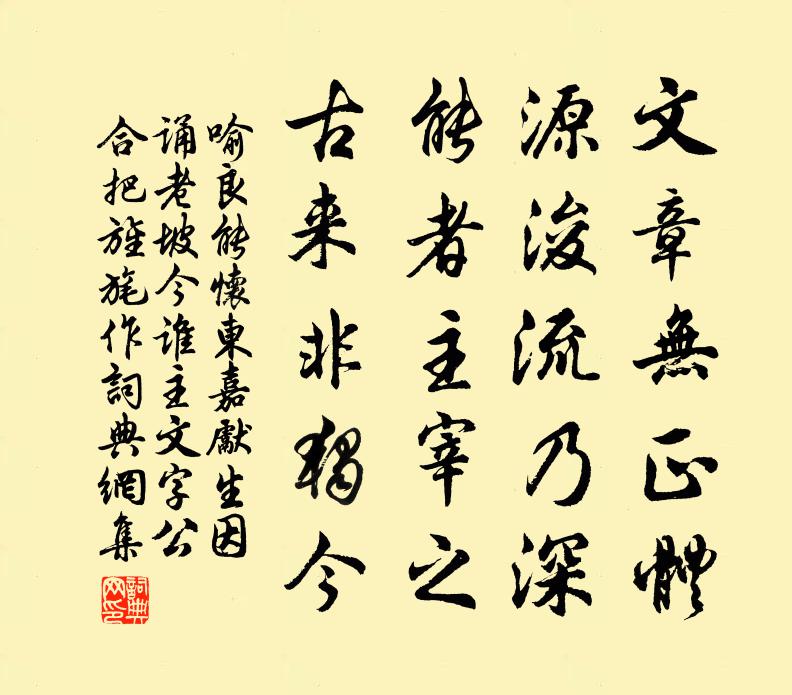 文章無正體
源浚流乃深
能者主宰之
古来非獨今
喻良能懷東嘉先生因
誦老坡今誰主文字公
合把旌旄作詞典網集
詞典網印